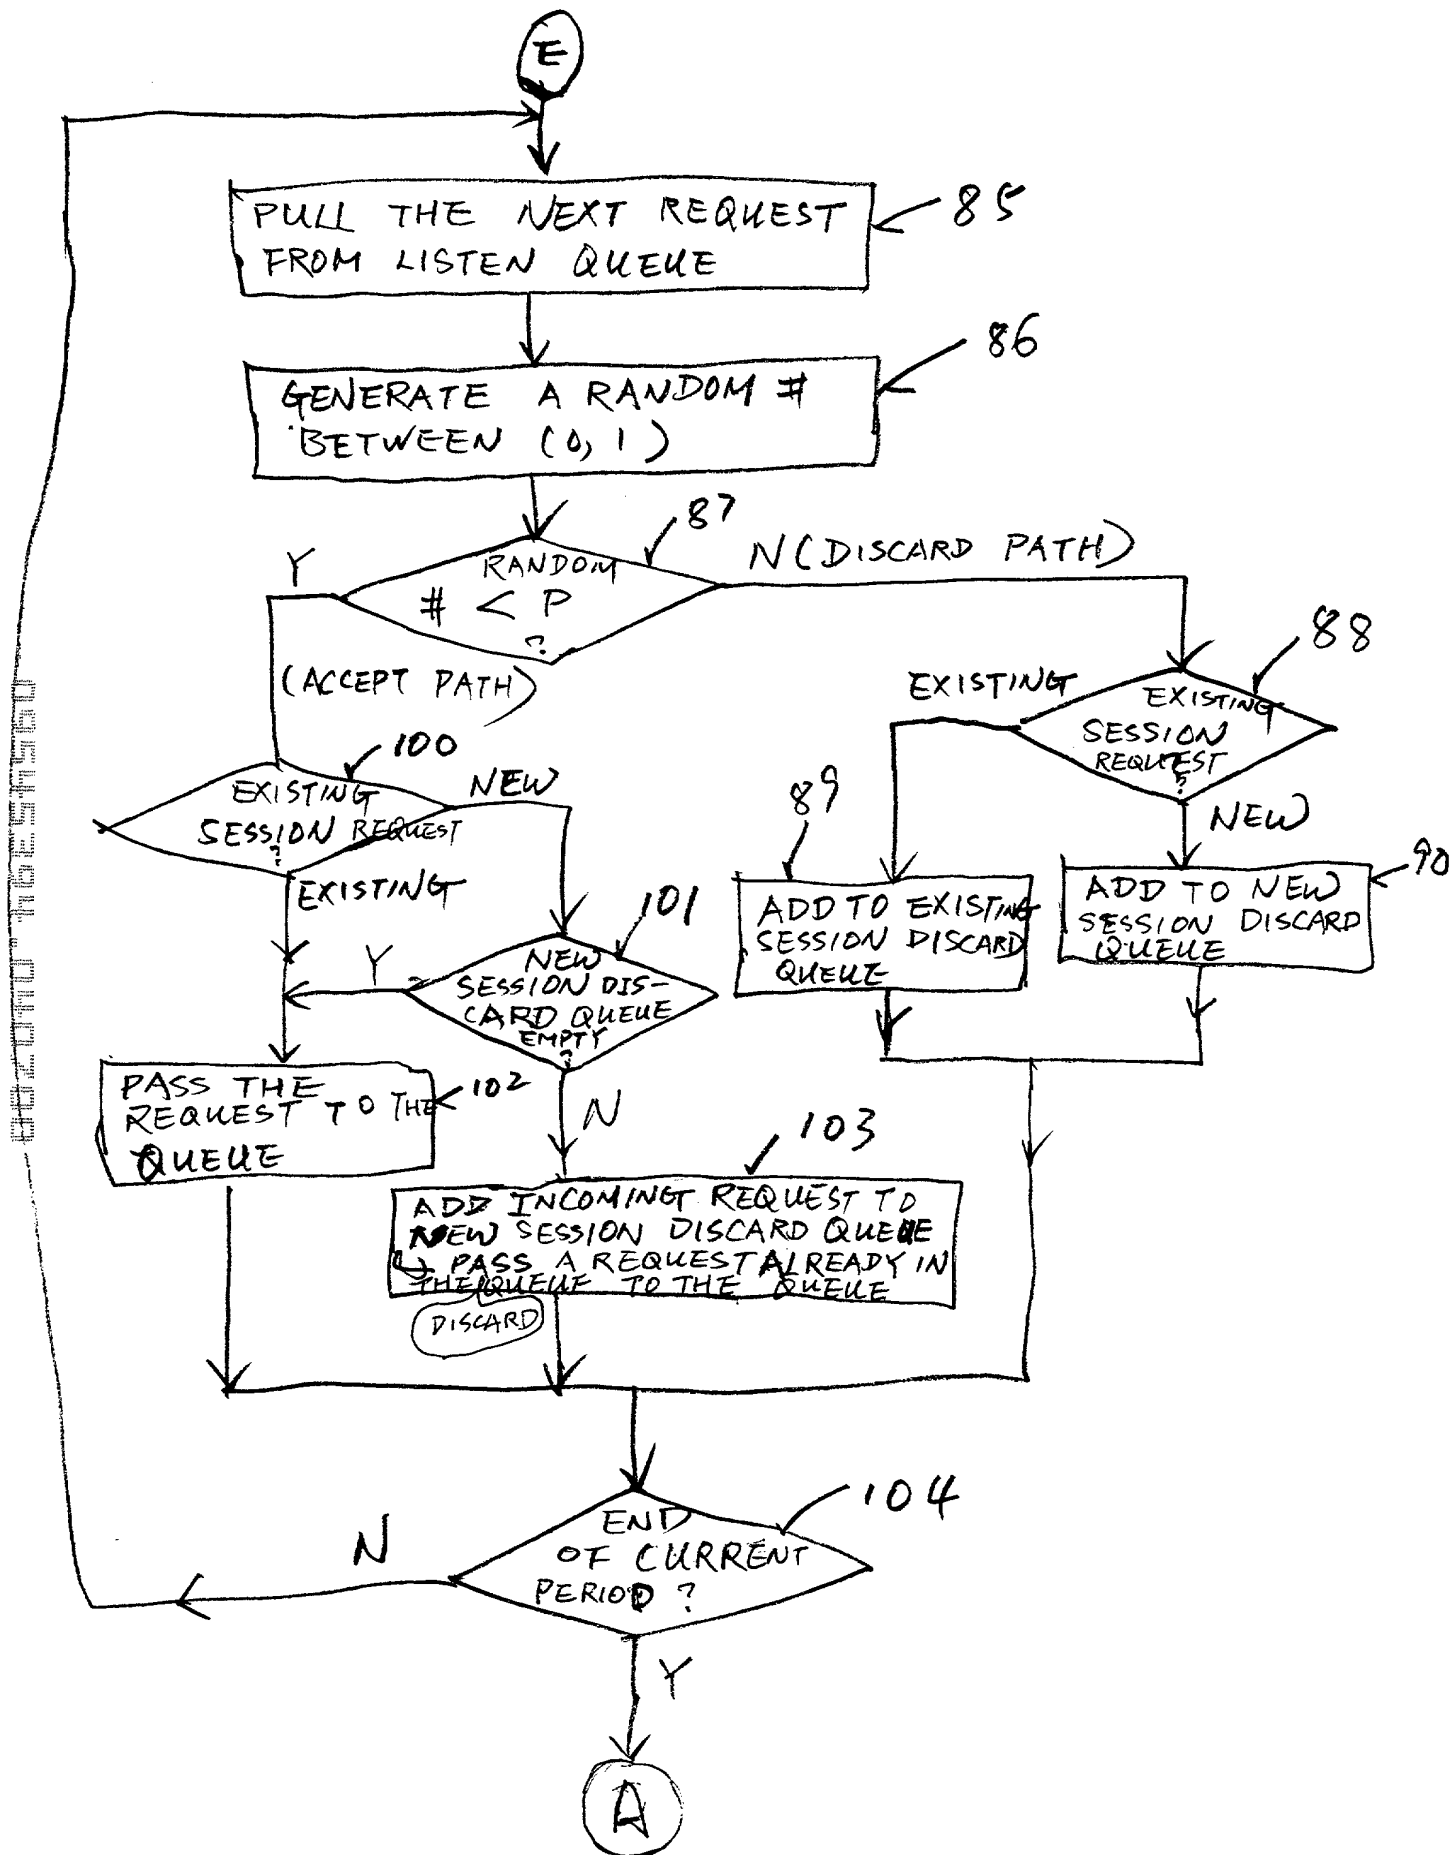 E
PULL THE NEXT REQUEST
FROM LISTEN QUEUE
85
GENERATE A RANDOM #
BETWEEN (0, 1)
86
RANDOM
# < P
?
87
Y
(ACCEPT PATH)
N (DISCARD PATH)
EXISTING
SESSION
REQUEST
?
88
EXISTING
NEW
EXISTING
SESSION REQUEST
?
100
NEW
EXISTING
89
ADD TO EXISTING
SESSION DISCARD
QUEUE
90
ADD TO NEW
SESSION DISCARD
QUEUE
NEW
SESSION DIS-
CARD QUEUE
EMPTY
?
101
Y
N
PASS THE
REQUEST TO THE
QUEUE
102
103
ADD INCOMING REQUEST TO
NEW SESSION DISCARD QUEUE
PASS A REQUEST ALREADY IN
THE QUEUE TO THE QUEUE
DISCARD
END
OF CURRENT
PERIOD ?
104
N
Y
A